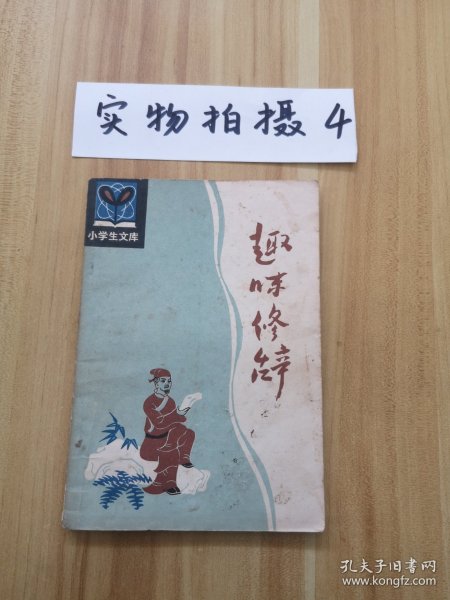 实物拍摄4
小学生文库
趣味修辞
孔夫子旧书网
www.kongfz.com